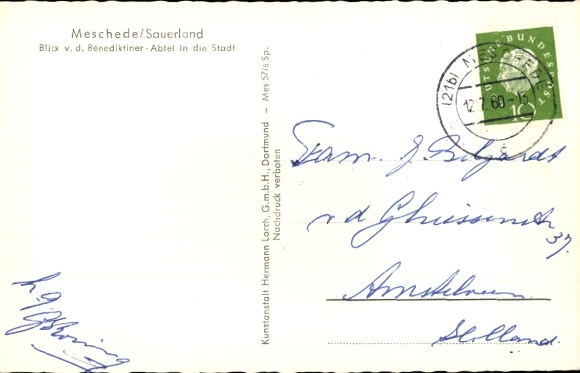 Meschede/Sauerland
Blick v. d. Benediktiner-Abtei in die Stadt
DEUTSCHE BUNDESPOST
10
(21b) MESCHEDE
12.7.60-13
Kunstanstalt Hermann Lorch, G.m.b.H., Dortmund — Mes 57/6 Sp.
Nachdruck verboten
Fam. J.
v d
37.
Amstelveen
Holland.
h. g.